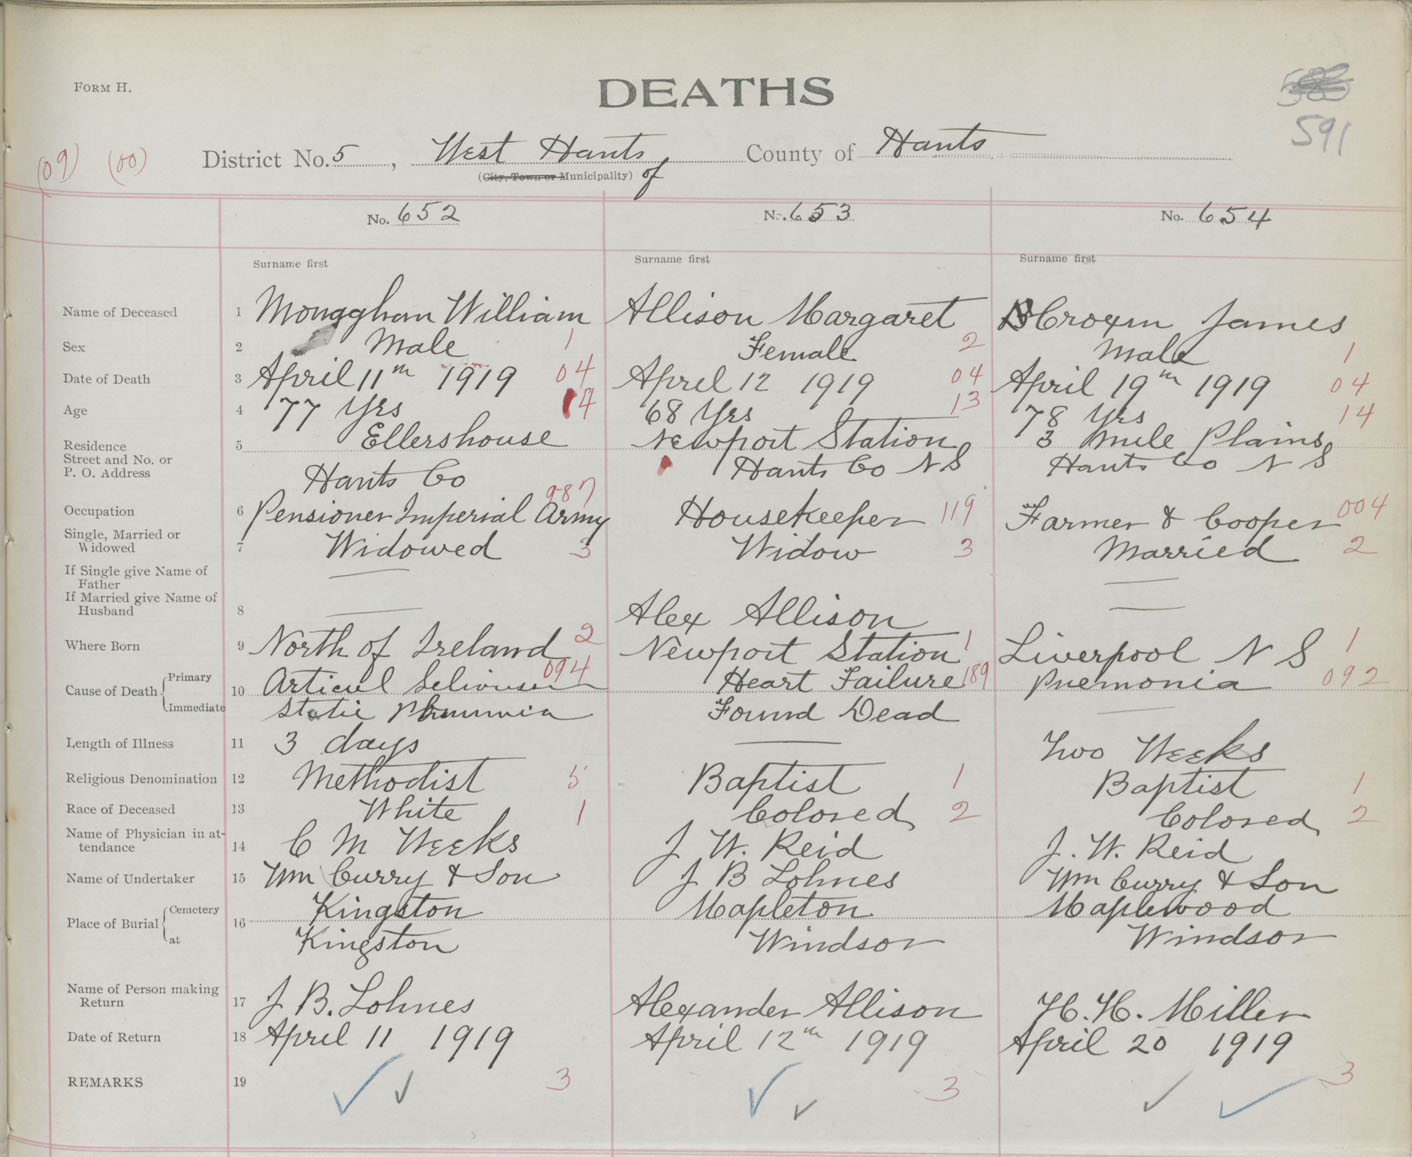 FORM H.
DEATHS
591
(09) (00) District No. 5, West Hants County of Hants
(City, Town or Municipality) of
No. 652 No. 653 No. 654
Surname first Surname first Surname first
Name of Deceased 1 Monaghan William Allison Margaret Croxen James
Sex 2 Male 1 Female 2 Male 1
Date of Death 3 April 11th 1919 04 Aprel 12 1919 04 April 19th 1919 04
Age 4 77 Yrs 14 68 Yrs 13 78 Yrs 14
Residence 5 Ellershouse Newport Station 3 Mile Plains
Street and No. or
P. O. Address Hants Co Hants Co N S Hants Co N S
Occupation 6 Pensioner Imperial Army 987 Housekeeper 119 Farmer & Cooper 004
Single, Married or
Widowed 7 Widowed 3 Widow 3 Married 2
If Single give Name of
Father
If Married give Name of
Husband 8 Alex Allison
Where Born 9 North of Ireland 2 Newport Station 1 Liverpool N S 1
Cause of Death Primary 10 094 Heart Failure 189 Pnemonia 092
Immediate Found Dead
Length of Illness 11 3 days Two Weeks
Religious Denomination 12 Methodist 5 Baptist 1 Baptist 1
Race of Deceased 13 White 1 Colored 2 Colored 2
Name of Physician in at-
tendance 14 C M Weeks J. W. Reid J. W. Reid
Name of Undertaker 15 Wm Curry & Son J B Lohnes Wm Curry & Son
Place of Burial Cemetery 16 Kingston Mapleton Maplewood
at Kingston Windsor Windsor
Name of Person making
Return 17 J B. Lohnes Alexander Allison H. H. Miller
Date of Return 18 April 11 1919 April 12th 1919 April 20 1919
REMARKS 19 3 3 3